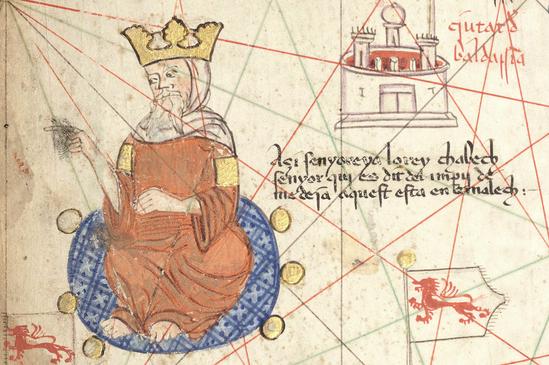 çiutat d
baldassia
Açi senyoreya lo rey chabech
senyor qui es dit del de
medeja aquest esta en lemalech :